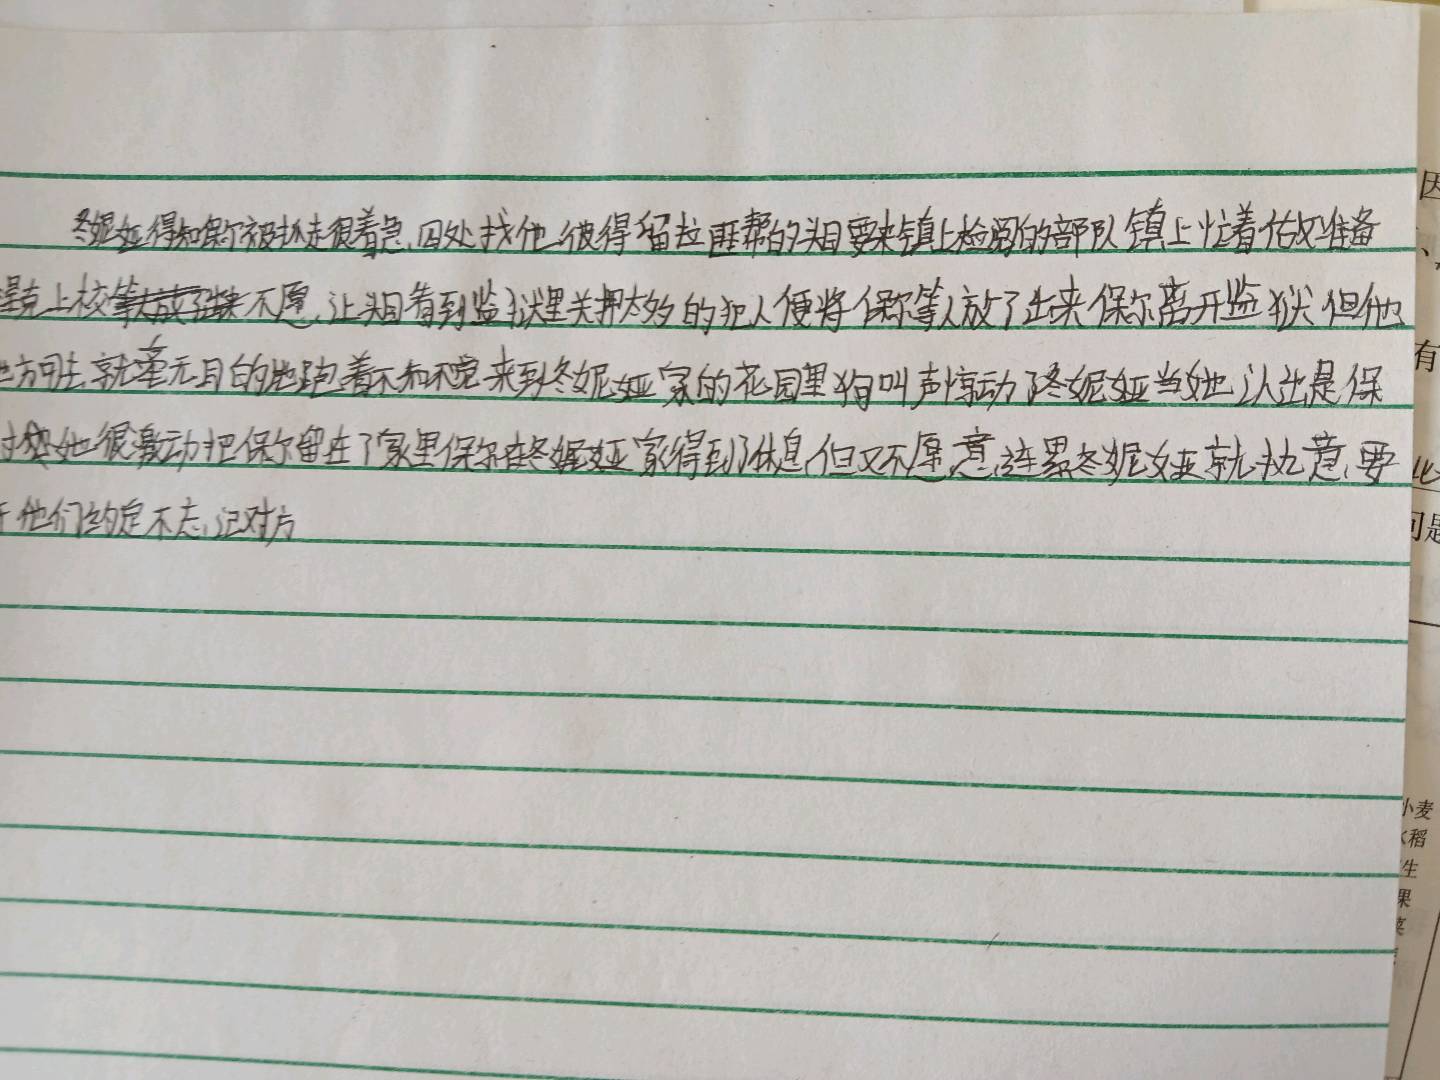 冬妮娅得知保尔被抓走很着急,四处找他,彼得留拉匪帮的头目要来镇上检阅的部队镇上忙着做准备
克上校不愿,让头目看到监狱里关押太多的犯人便将保尔等人放了出来保尔离开监狱但他
地方可去,就毫无目的地跑着不知不觉来到冬妮娅家的花园里狗叫声惊动了冬妮娅当她认出是保
她很激动把保尔留在了家里保尔在冬妮娅家得到了休息,但又不愿意连累冬妮娅就执意要
他们约定不忘记对方
因
有
问题
小麦
水稻
生
果
菜